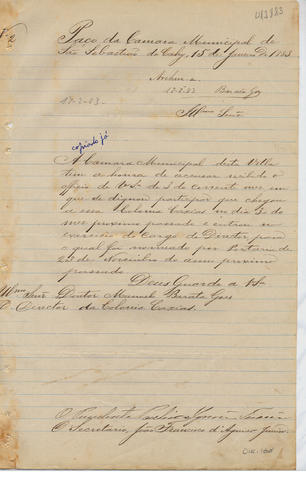 Paço da Camara Municipal de
São Sebastião do Cahy, 15 de Janeiro de 1883
Archive-se
17-2-83
Barata Goes
17-2-83.
Illmo Senr
copiado já
A Camara Municipal desta Villa
tem a honra de accusar recebido o
officio de V.Sa. de 5 do corrente mez em
que se dignou participar que chegou
a essa Colonia Caxias no dia 3 do
mez proximo passado e entrou em
exercicio do cargo de Director, para
o qual foi nomeado por Portaria de
22 de Novembro do anno proximo
passado.
Deus Guarde a VSa
Illmo Senr Doutor Manuel Barata Goes
D. Director da Colonia Caxias.
O Presidente
O Secretario, João Francisco d'